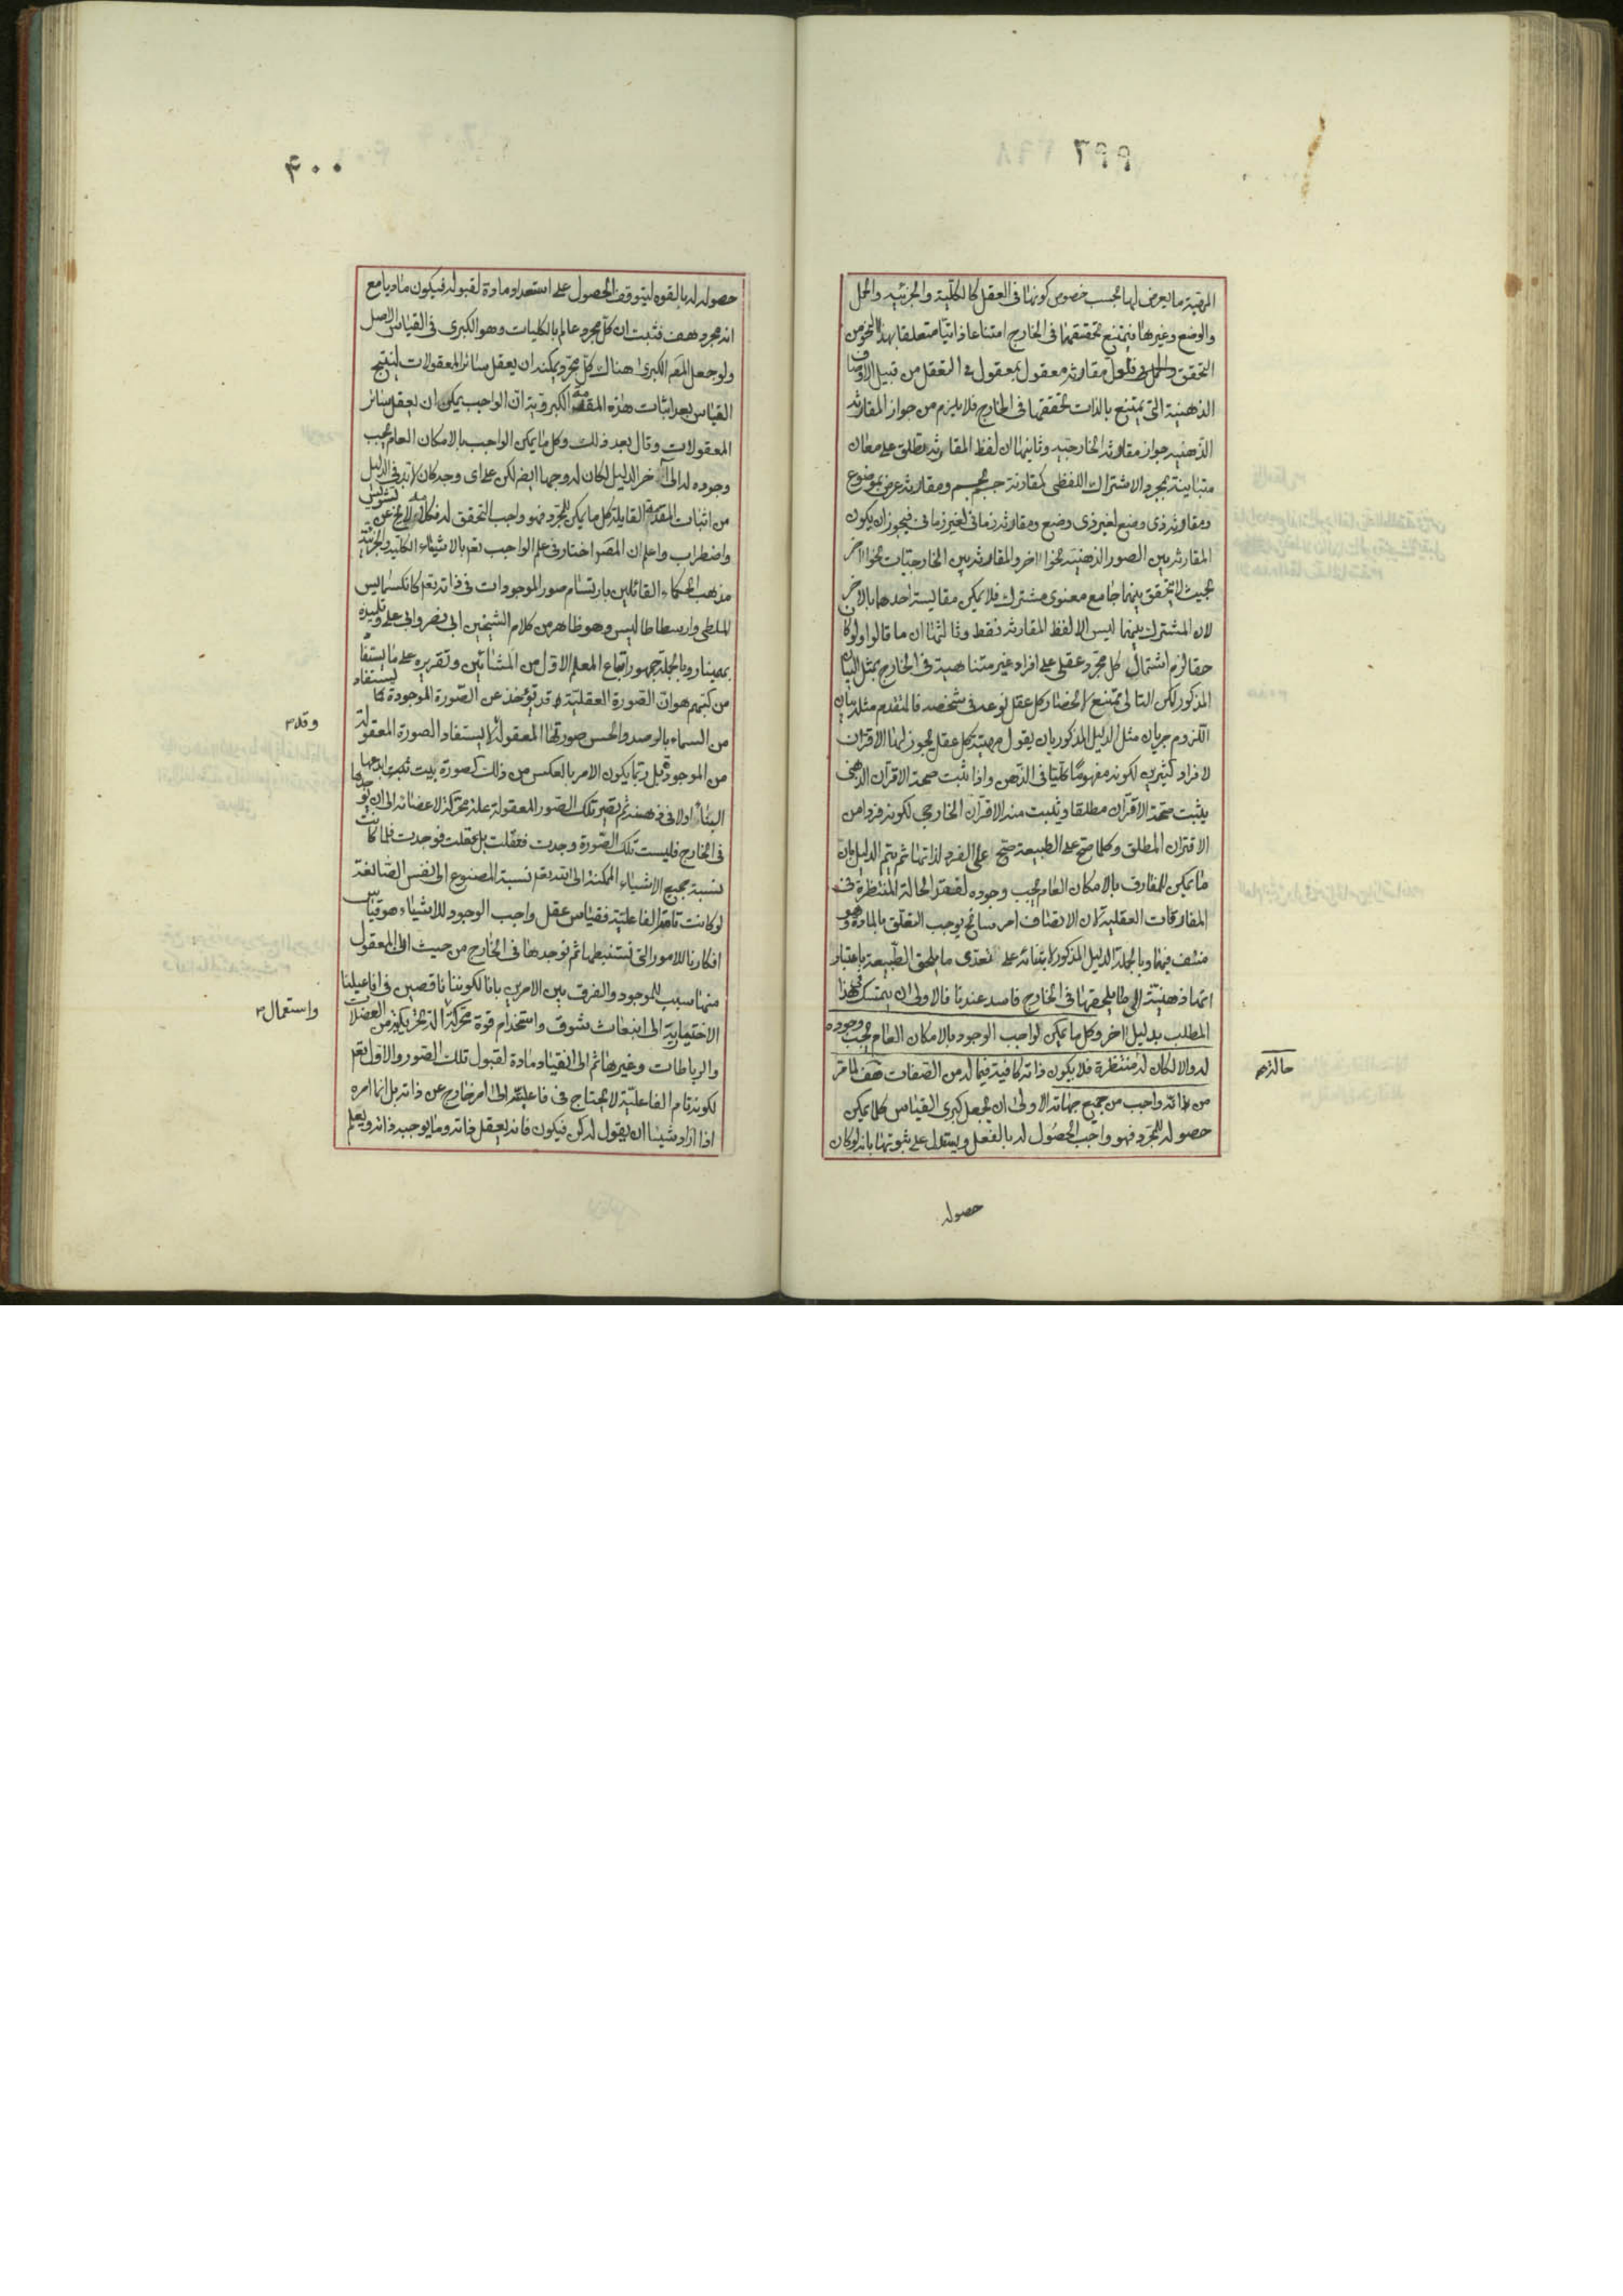 ٣٩٩
المهية ما يعرض لها بحسب خصوص كونها فى العقل كالكلية والجزئيه والحمل
والوضع وغيرها فيمتنع تحققها فى الخارج امتناعا ذاتيا متعلقا بهذا النحو من
التحقق فلعل مقارنة معقول بمعقول فى التعقل من قبيل الاوصاف
الذهنية التى يمتنع بالذات تحققها فى الخارج فلا يلزم من جواز المقارنة
الذهنيه جواز مقارنة الخارجيه وثانيها ان لفظ المقارنة تطلق على معان
متباينة بمجرد الاشتراك اللفظى كمقارنة جسم بجسم ومقارنة عرض بموضوع
ومقارنة ذى وضع لغير ذى وضع ومقارنة زمانى لغير زمانى فيجوز ان يكون
المقارنة بين الصور الذهنية نحوا اخر والمقارنة بين الخارجيات نحوا اخر
بحيث لا يتحقق بينهما جامع معنوى مشترك فلا يمكن مقايسة احدهما بالاخر
لان المشترك بينهما ليس الا لفظ المقارنة فقط وثالثها ان ما قالوا لو كان
حقا لزم اشتمال كل مجرد عقلى على افراد غير متناهية فى الخارج بمثل البيان
المذكور لكن التالى ممتنع لانحصار كل عقل نوعه فى شخصه فالمقدم مثله بيان
اللزوم جريان مثل الدليل المذكور بان يقول مهية كل عقل يجوز لها الاقتران
لافراد كثيرين لكونه مفهوما كليا فى الذهن واذا ثبت صحة الاقتران الذهنى
يثبت صحة الاقتران مطلقا ويثبت منه الاقتران الخارجى لكونه فردا من
الاقتران المطلق وكلما صح على الطبيعة صح على الفرد لذاتها ثم يتم الدليل بان
ما يمكن للمفارق بالامكان العام يجب وجوده لفقد الحالة المنتظرة فى
المفارقات العقلية لان الاتصاف امر سانح يوجب التعلق بالمادة وهو
منتف فيها وبالجملة الدليل المذكور لابتنائه على تعدى ما يلحق الطبيعة باعتبار
انها ذهنية الى ما يلحقها فى الخارج فاسد عندنا فالاولى ان يتمسك فى هذا
المطلب بدليل اخر وكل ما يمكن لواجب الوجود بالامكان العام يجب وجوده
له والا لكان له منتظرة فلا يكون ذاته كافية فيما له من الصفات هف لما مر
حالة
من انه واجب من جميع جهاته الاولى ان يجعل كبرى القياس كلما يمكن
حصوله للمجرد فهو واجب الحصول له بالفعل ويستدل على ثبوتها بانه لو كان
حصوله
٤٠٠
حصوله له بالقوه ليتوقف الحصول على استعداد مادة لقبوله فيكون ماديا مع
انه مجرد هف فثبت ان كل مجرد عالم بالكليات وهو الكبرى فى القياس الاصل
ولو جعل المقدمة الكبرى هناك كل مجرد يمكنه ان يعقل سائر المعقولات لينتج
القياس بعد اثبات هذه المقدمة الكبروية ان الواجب يمكن ان يعقل سائر
المعقولات وقال بعد ذلك وكل ما يمكن الواجب بالامكان العام يجب
وجوده له الى آخر الدليل لكان له وجها ايضا لكن على اى وجه كان لابد فى الدليل
من اثبات المقدمة القايلة كل ما يمكن للمجرد فهو واجب التحقق له فكلامه لا يخ عن تشويش
واضطراب واعلم ان المص اختار فى علم الواجب تعم بالاشياء الكلية والجزئية
مذهب الحكماء القائلين بارتسام صور الموجودات فى ذاته تعم كانكسمايس
الملطى وارسطاطاليس وهو ظاهر من كلام الشيخين ابى نصر وابى على وتلميذه
بهمنيار وبالجملة جمهور اتباع المعلم الاول من المشائين وتقريره على ما يستفاد
من كتبهم هو ان الصورة العقلية قد تؤخذ عن الصورة الموجودة كما يستفاد
من السماء بالرصد والحس صورتها المعقولة لا يستفاد الصورة المعقولة
وقد
من الموجود بل ربما يكون الامر بالعكس من ذلك كصورة بيت ابدعها
البناء اولا فى ذهنه ثم يصير تلك الصور المعقولة علة محركة لاعضائه الى ان يوجدها
فى الخارج فليست تلك الصورة وجدت فعقلت بل عقلت فوجدت فلما كانت
نسبة جميع الاشياء الممكنة الى الله تعم نسبة المصنوع الى النفس الصانعة
لو كانت تامة الفاعلية فقياس عقل واجب الوجود للاشياء هو قياس
افكارنا للامور التى نستنبطها ثم نوجدها فى الخارج من حيث ان المعقول
منها سبب للموجود والفرق بين الامرين بانا لكوننا ناقصين فى افاعيلنا
الاختيارية الى انبعاث شوق واستخدام قوة محركة آلة تحريكية من العضلات
واستعمال
والرباطات وغيرها ثم الى انقياد مادة لقبول تلك الصور والاول تعم
لكونه تام الفاعلية لا يحتاج فى فاعليته الى امر خارج عن ذاته بل انما امره
اذا اراد شيئا ان يقول له كن فيكون فانه يعقل ذاته وما يوجبه ذاته ويعلم